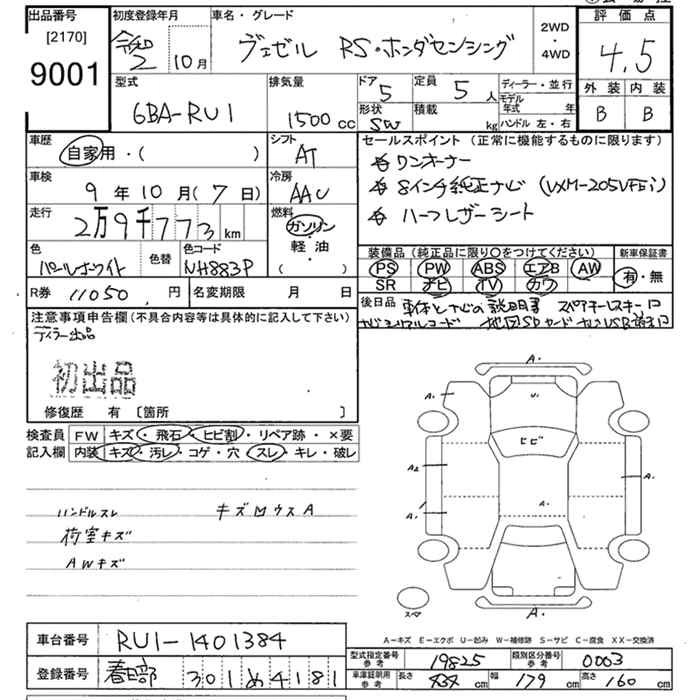 出品番号 初度登録年月 車名・グレード 2WD・4WD 評価点
[2170]
9001
令和2 10月 ヴェゼル RS・ホンダセンシング 4.5
型式 排気量 ドア 定員 ディーラー・並行 外装 内装
6BA-RU1 1500cc 5 5人 モデル年式 年 B B
形状 積載 ハンドル 左・右
SW kg
車歴 シフト セールスポイント (正常に機能するものに限ります)
自家用・( ) AT ワンオーナー
車検 冷房 8インチ純正ナビ (VXM-205VFEi)
9年10月(7日) AAC ハーフレザーシート
走行 燃料
2万9千773km ガソリン・軽油・( )
装備品 (純正品に限り○をつけてください) 新車保証書
色 色替 色コード PS PW ABS エアB AW 有・無
パールホワイト NH883P SR ナビ TV カワ
R券 11050円 名変期限 月 日 後日品 車体とナビの説明書 スペアキーレスキー
注意事項申告欄(不具合内容等は具体的に記入して下さい)
ディラー出品
初出品
修復歴 有 [箇所 ]
検査員 FW キズ・飛石・ヒビ割・リペア跡・×要
記入欄 内装 キズ・汚レ・コゲ・穴・スレ・キレ・破レ
ハンドルスレ キズMウスA
荷室キズ
AWキズ
A.
A. U.
ヒビ
A2
A.
A. A.
A.
スマ
A-キズ E-エクボ U-凹み W-補修跡 S-サビ C-腐食 XX-交換済
車台番号 RU1-1401384
型式指定番号 参考 19825 類別区分番号 参考 0003
登録番号 春日部 301 め 4181
車庫証明用 参考 長さ 434cm 幅 179cm 高さ 160cm